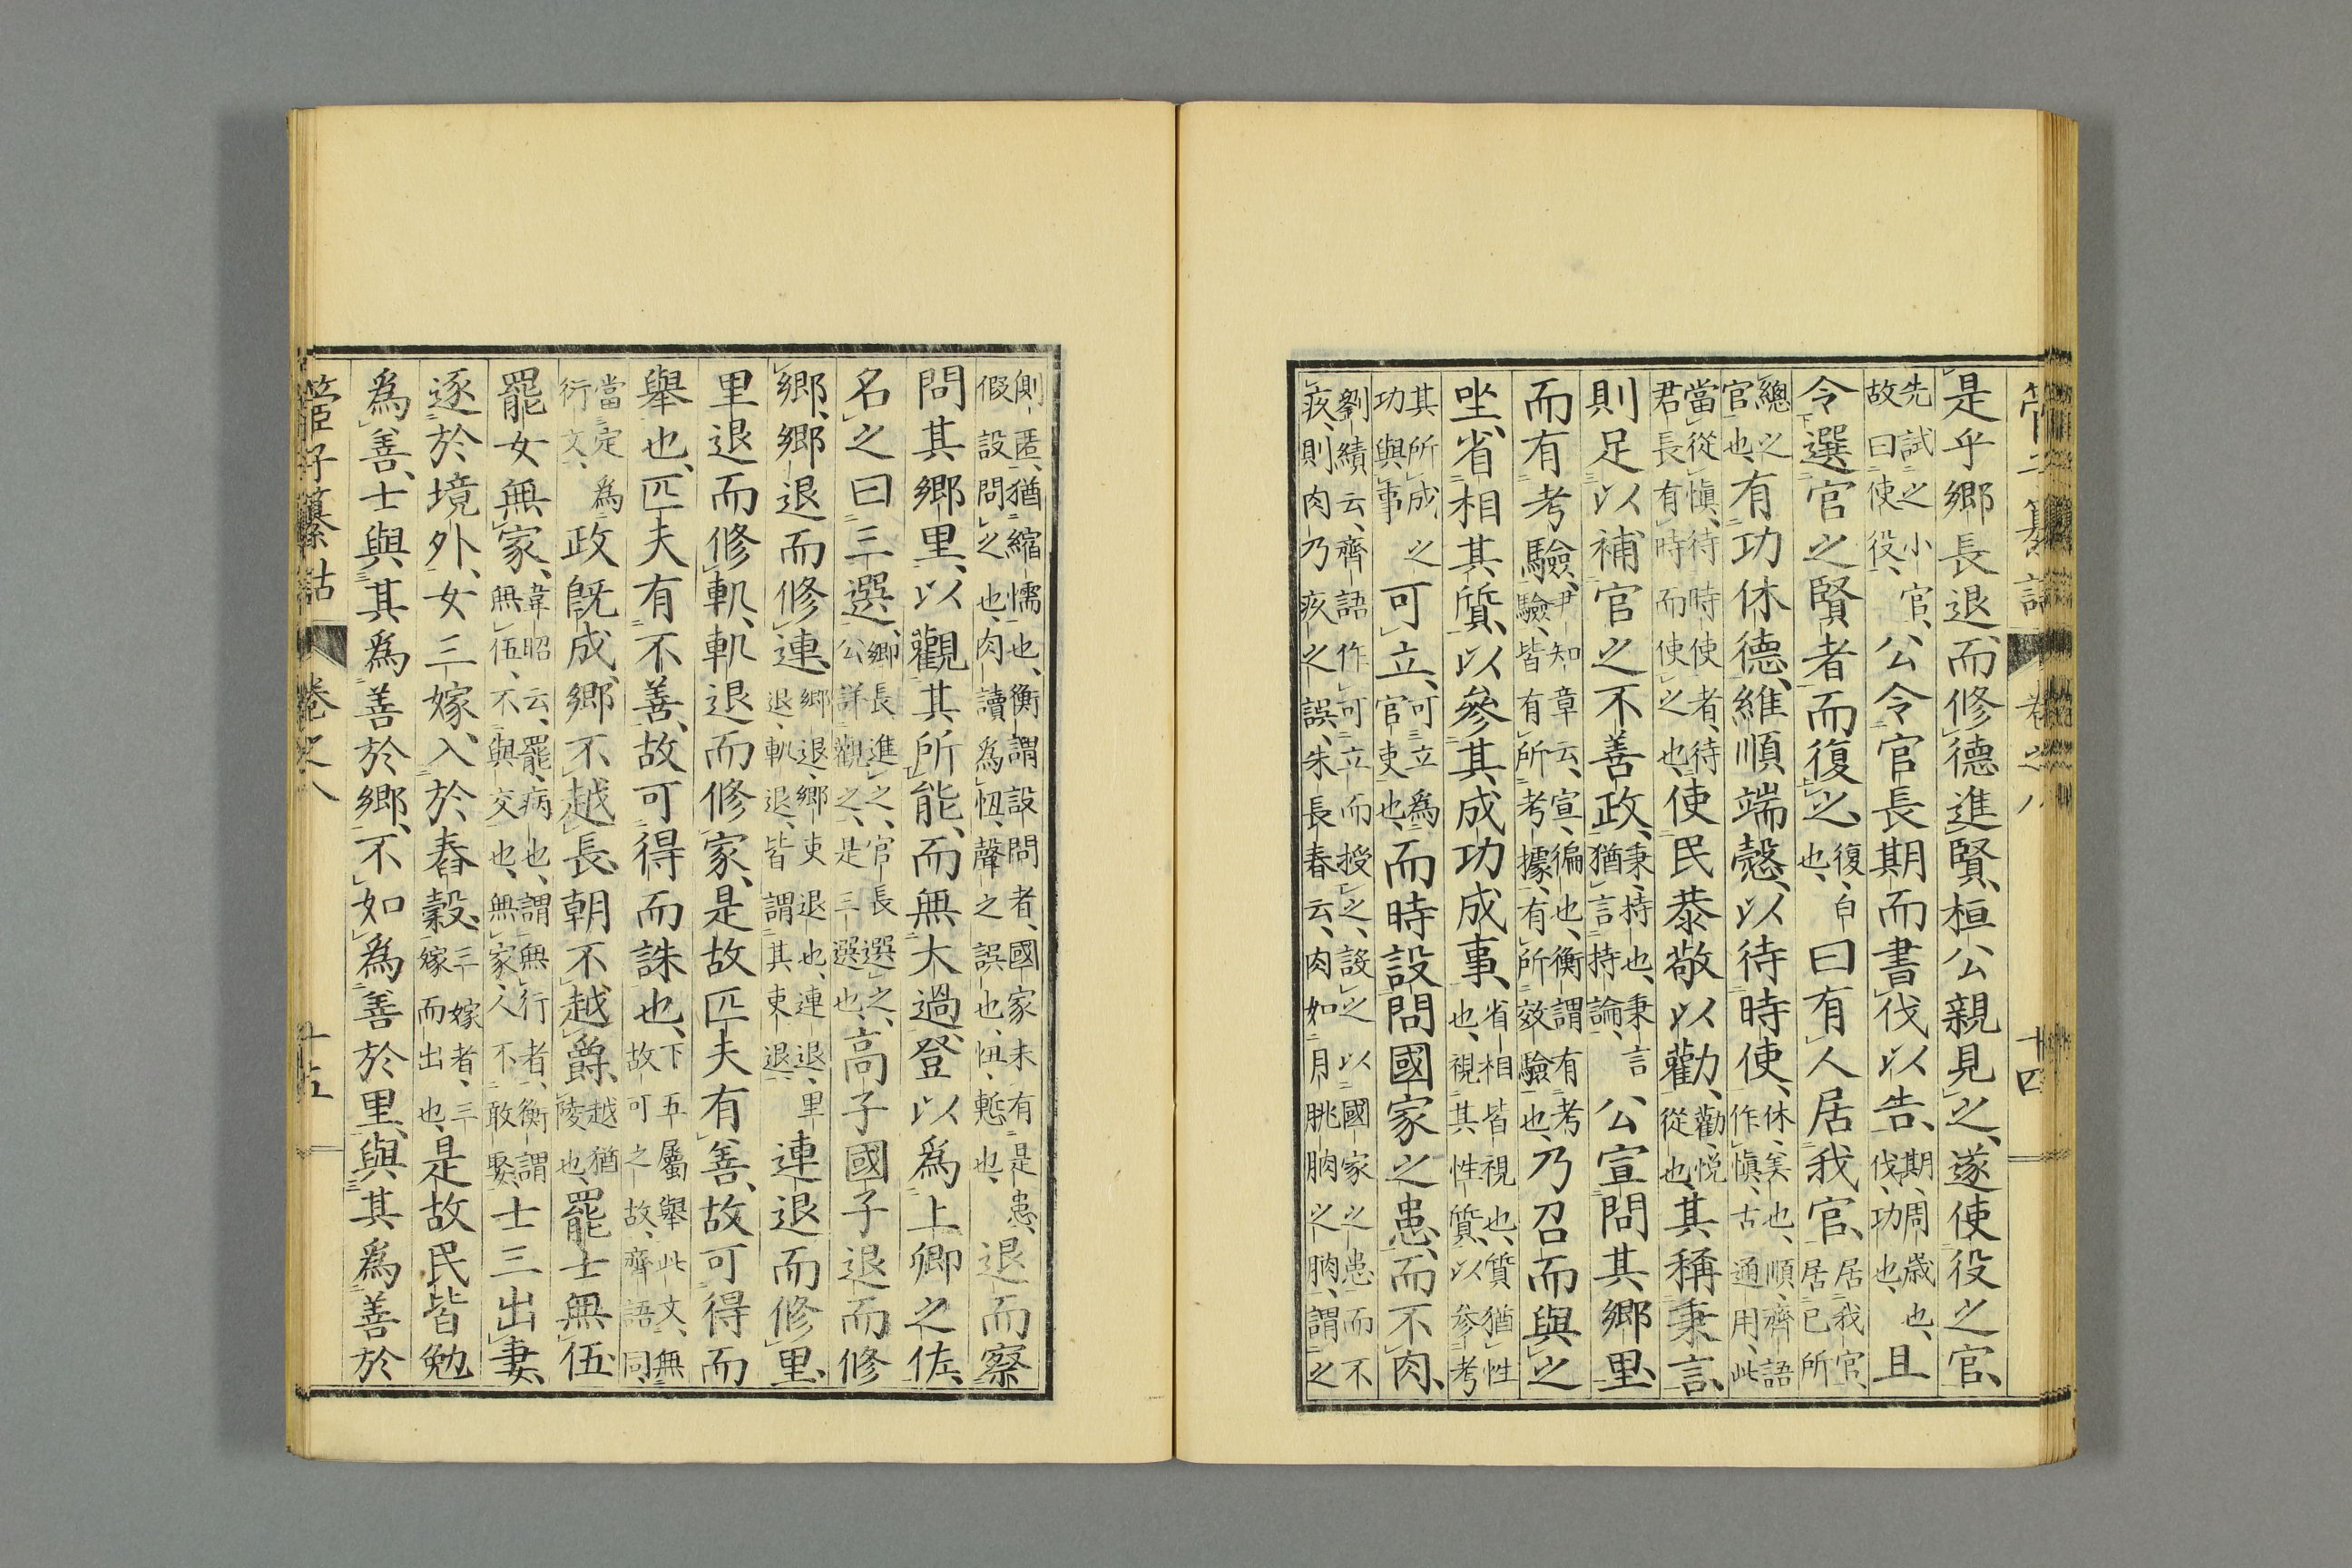 管子纂詁 卷之八 十四
是乎鄉長退而修德進賢、桓公親見之、遂使役之官、
先試之小官、故曰使役、公令官長期而書伐以告、期、周歲也、伐、功也、且
令選官之賢者而復之、復、白也、曰有人居我官、居我官、居已所
總之官也、有功休德、維順端愨、以待時使、休、美也、順、齊語作愼、古通用、此
當從愼、待時使者、待君長有時而使之也、使民恭敬以勸、勸、悅從也、其稱秉言、
則足以補官之不善政、秉、持也、秉言猶言持論、公宣問其鄉里、
而有考驗、尹知章云、宣、徧也、衡謂有考驗、皆有所考據、有所效驗也、乃召而與之
坐、省相其質、以參其成功成事、省相皆視也、質猶性也、視其性質、以參考
其所成之功與事可立、可立爲官吏也、而時設問國家之患、而不肉、
劉績云、齊語作可立而授之、設之以國家之患而不疚、則肉乃疚之誤、朱長春云、肉如月朓朒之朒、謂之
側匿、猶縮懦也、衡謂設問者、國家未有是患、假設問之也、肉讀爲忸、聲之誤也、忸、慙也、退而察
問其鄉里、以觀其所能、而無大過、登以爲上卿之佐、
名之曰三選、鄉長進之、官長選之、公詳觀之、是三選也、高子國子退而修
鄉、鄉退而修連、鄉退、鄉吏退也、連退、里退、軌退、皆謂其吏退、連退而修里、
里退而修軌、軌退而修家、是故匹夫有善、故可得而
舉也、匹夫有不善、故可得而誅也、下五屬舉此文、無故可之故、齊語同、
當定爲衍文、政既成、鄉不越長、朝不越爵、越猶陵也、罷士無伍、
罷女無家、韋昭云、罷、病也、謂無行者、衡謂無伍、不與交也、無家、人不敢娶、士三出妻、
逐於境外、女三嫁、入於舂穀、三嫁者、三嫁而出也、是故民皆勉
爲善、士與其爲善於鄉、不如爲善於里、與其爲善於
管子纂詁 卷之八 十五